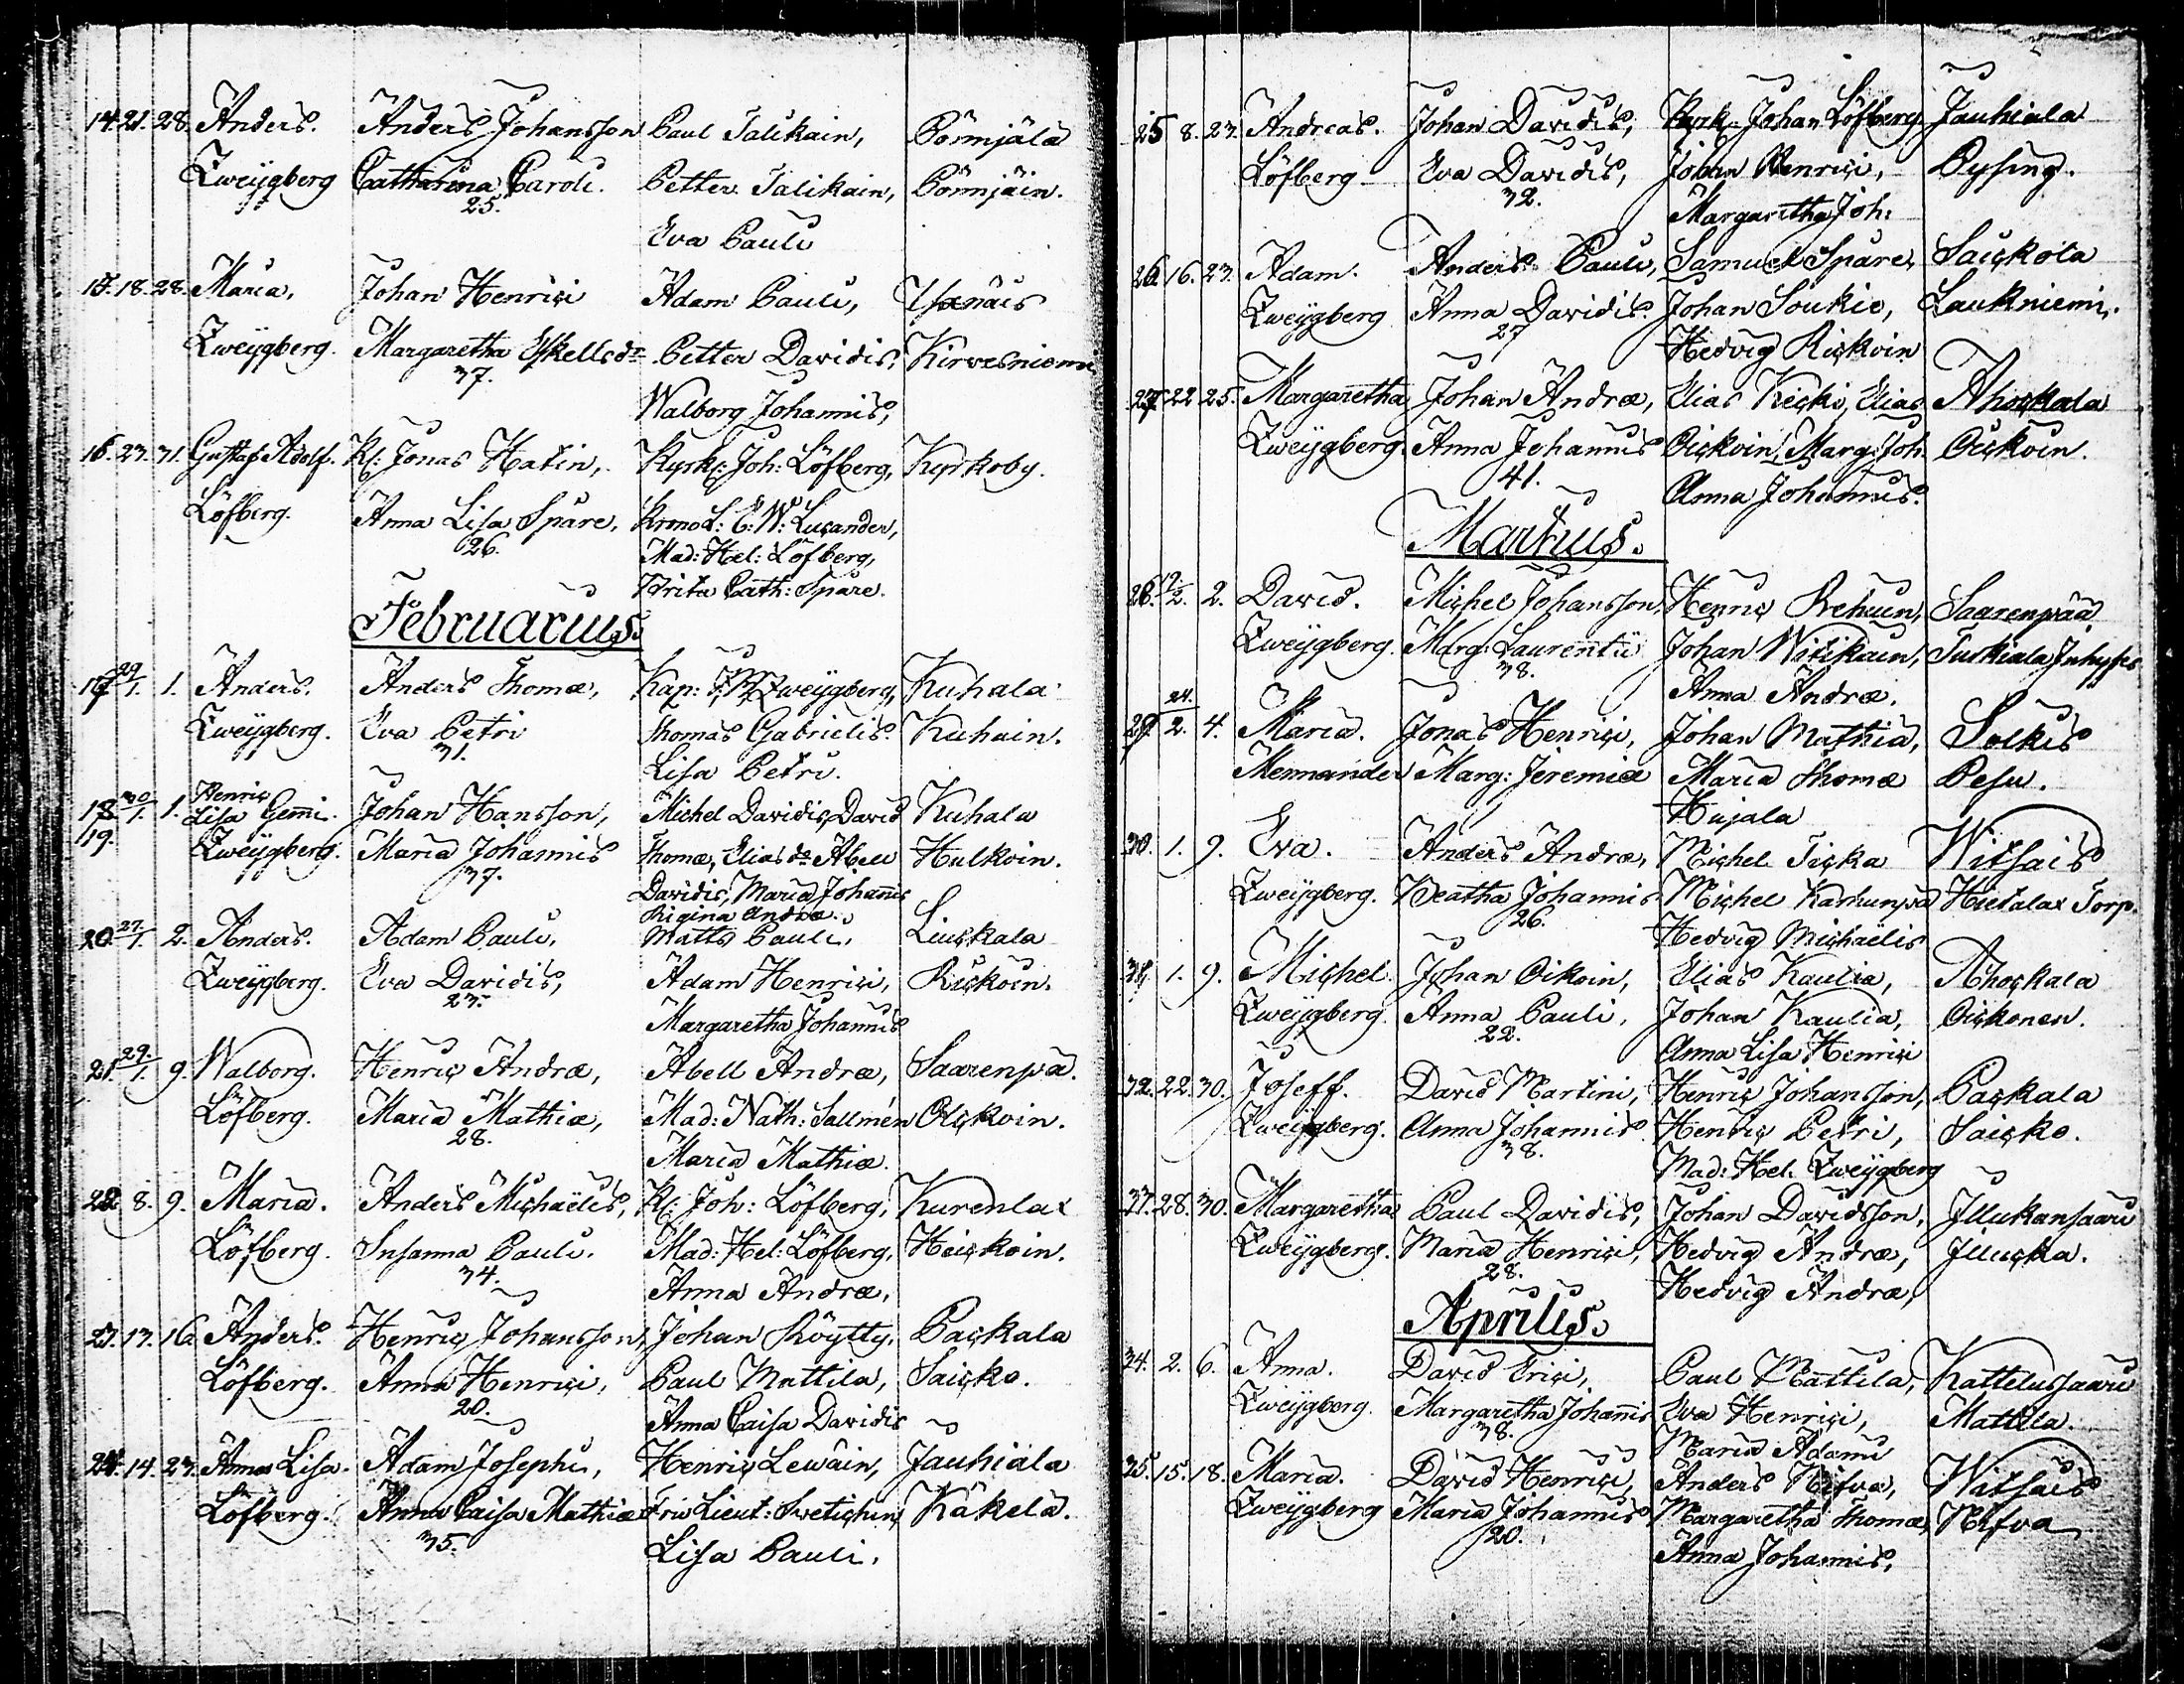 14. 21. 28. Anders. Anders Johansson Paul Talikain, Pönnjälä
Zweÿgberg Catharina Caroli. Petter Talikain, Pönnjäin.
25. Eva Pauli
15. 18. 28. Maria. Johan Henrici Adam Pauli,
Zweÿgberg. Margaretha Eskellsdr Petter Davidis, Kirvesniemi
37. Walborg Johannis,
16. 23. 31. Gustaf Adolf. Kl: Jonas Hatin, Kyrkj: Joh: Löfberg, Kyrkoby.
Löfberg. Anna Lisa Spåre, Krono L: C: W: Lucander,
26. Mad: Hel: Löfberg,
Brita Cath: Spåre.
Februarius.
17. 29/1. 1. Anders. Anders Thomæ, Kap: Zweÿgberg, Kuhala
Zweÿgberg. Eva Petri Thomas Gabrielis. Kuhain.
31. Lisa Petri.
18. 30/1. 1. Henric Lisa Gemi. Johan Hansson, Michel Davidis, David Kuhala
19. Zweÿgberg. Maria Johannis Thomæ, Elias dr Abell Hulkoin.
37. Davidis, Maria Johannis
Regina Andræ.
20. 27/1. 2. Anders. Adam Pauli, Matts Pauli, Liuckala
Zweÿgberg. Eva Davidis, Adam Henrici, Rickoin.
23. Margaretha Johannis
21. 29./1. 9. Walborg. Henric Andræ, Abell Andræ, Saarenpä.
Löfberg. Maria Mathiæ, Mad: Nath: Sallmén Olckoin.
28. Maria Mathiæ.
22. 8. 9. Maria. Anders Michaëlis, Kl: Joh: Löfberg, Kurenlax
Löfberg. Susanna Pauli. Mad: Hel: Löfberg, Heickoin.
34. Anna Andræ,
23. 13. 16. Anders. Henric Johansson, Johan Röytty, Packala
Löfberg. Anna Henrici, Paul Mattila, Saicko.
20. Anna Caisa Davidis
24. 14. 23. Anna Lisa. Adam Josephi, Henric Lewäin, Jauhiala
Löfberg. Anna Caisa Mathiæ Fru Lieut: Swetichin, Käkelä.
35. Lisa Pauli.
25 8. 23. Andreas. Johan Davidis, Kyrk: Johan Löfberg. Jauhiala
Löfberg Eva Davidis, Johan Henrici, Pysing.
32. Margaretha Joh:
26. 16. 23. Adam. Anders Pauli, Samuel Spåre, Saickola
Zweÿgberg Anna Davidis. Johan Soukie, Laukniemi.
27 Hedvig Rickoin
27 22 25. Margaretha Johan Andræ, Elias Kecki, Elias Ahockala
Zweÿgberg. Anna Johannis Oickoin, Marg: Joh. Oickoin.
41. Anna Johannis.
Martius.
28. 19./2. 2. David. Michel Johansson, Henric Rehuin, Saarenpää
Zweÿgberg. Marg: Laurentii Johan Witikain, Tuskiala Inhyses
38. Anna Andræ.
29. 24./2. 4. Maria. Jonas Henrici, Johan Mathiæ, Solkis
Mennander Marg: Jeremiæ Maria Thomæ Pesu.
Hujala
30. 1. 9. Eva. Anders Andræ, Michel Ticka Witsais
Zweÿgberg. Beatha Johannis Michel Karhunpä Hietalax Torp.
26. Hedvig Michaëlis
31. 1. 9. Michel. Johan Oikoin, Elias Kaulia, Ahockala
Zweÿgberg. Anna Pauli, Johan Kaulia, Oickonen.
22. Anna Lisa Henrici
32. 22. 30. Joseff. David Martini, Henric Johansson, Packala
Zweÿgberg. Anna Johannis Henric Petri, Saicko.
38. Mad: Hel. Zweÿgberg
33. 28. 30. Margaretha Paul Davidis, Johan Davidsson, Illukansaari
Zweÿgberg. Maria Henrici, Hedvig Andræ, Illucka.
28. Hedvig Andræ,
Aprilis.
34. 2. 6. Anna. David Erici, Paul Mattila, Kattelussaari
Zweÿgberg. Margaretha Johannis Eva Henrici, Mattila.
38. Maria Adami
35. 15. 18. Maria. David Henrici, Anders Hifva, Witsais
Zweÿgberg Maria Johannis Margaretha Thomæ, Hifva
20. Anna Johannis,